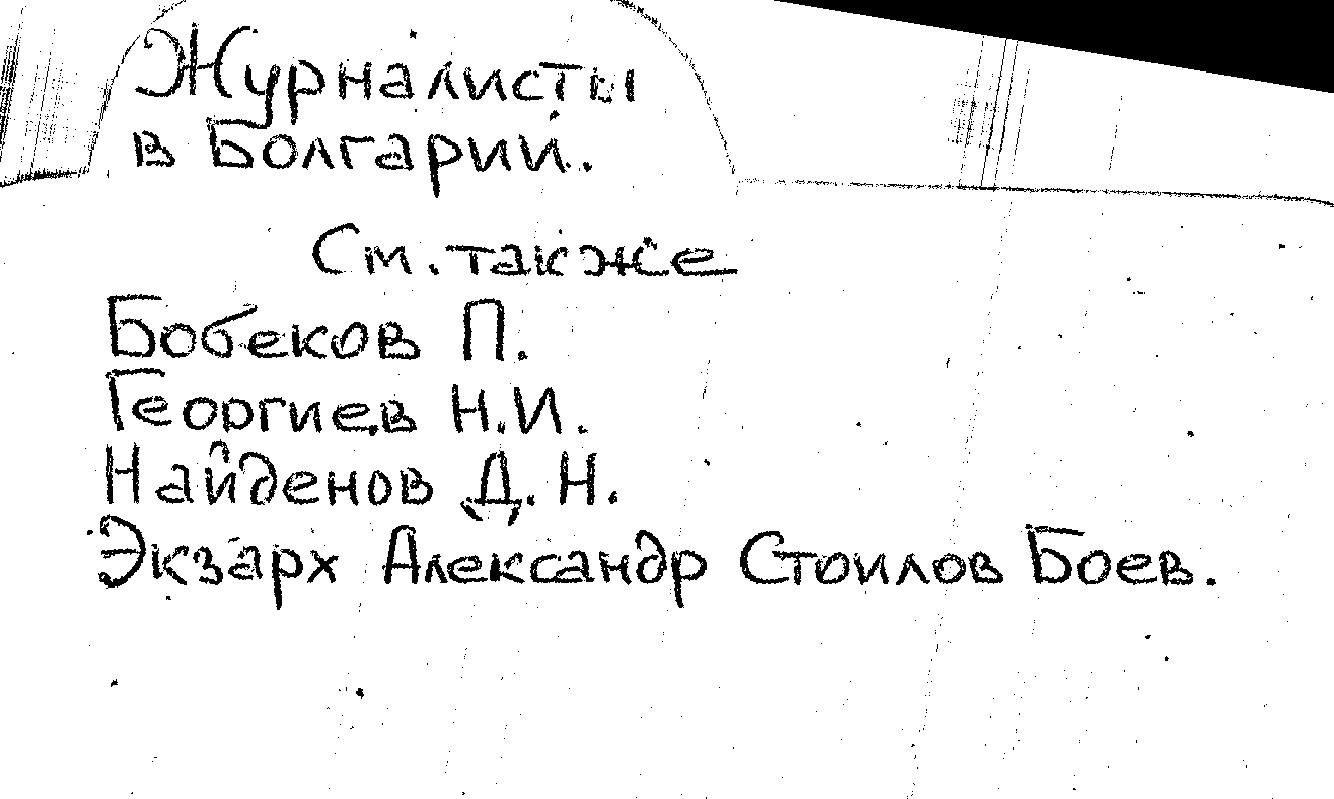 Журналисты
в Болгарии.
См. также
Бобеков П.
Георгиев Н.И.
Найденов Д. Н.
Экзарх Александр Стоилов Боев.